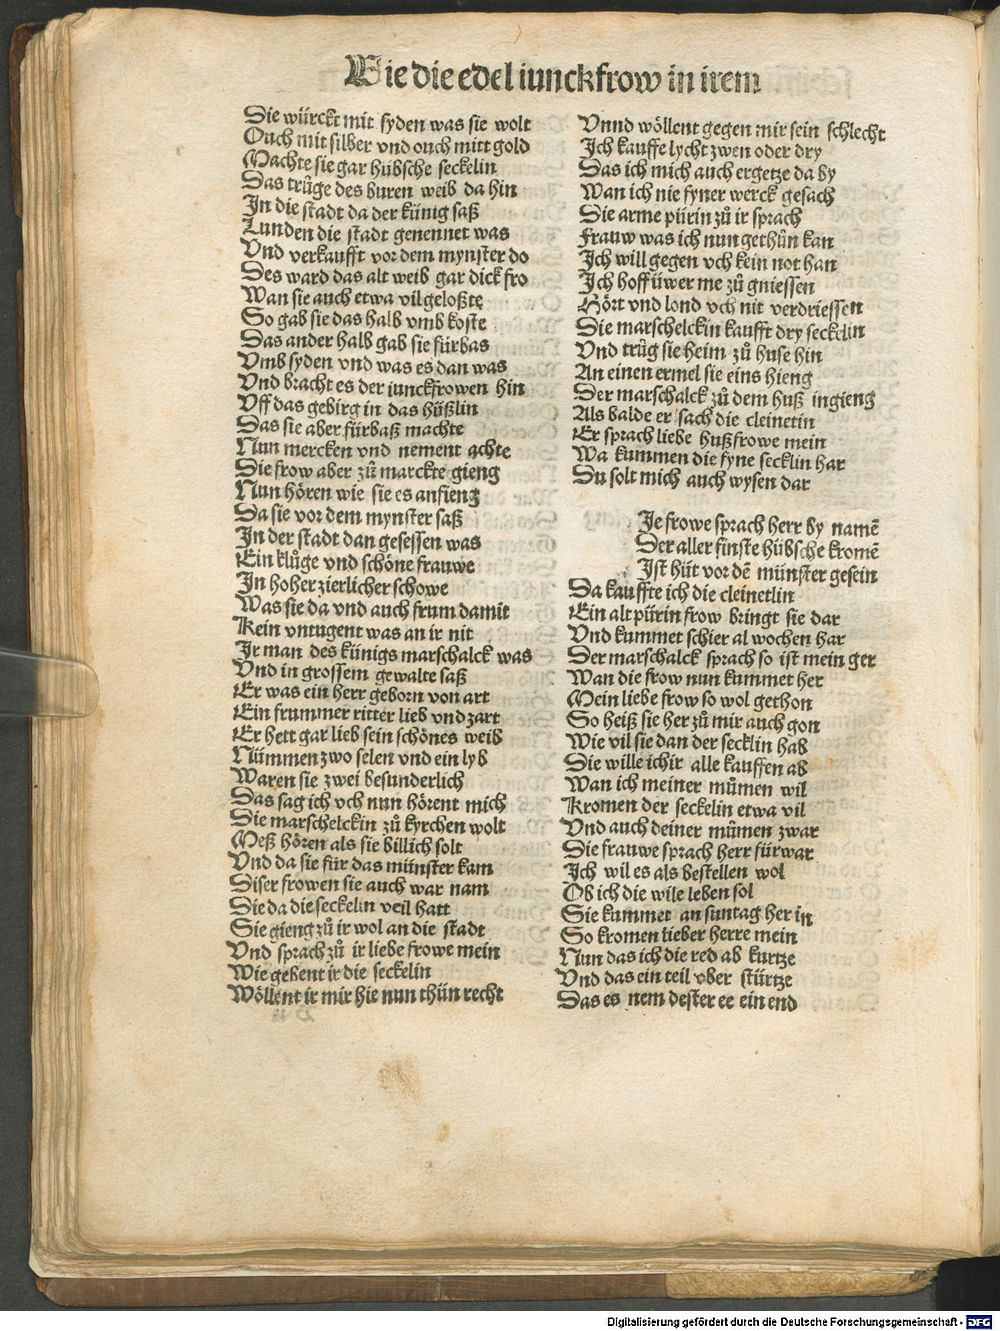 Wie die edel iunckfrow in irem
Die würckt mit syden was sie wolt
Ouch mit silber vnd ouch mitt gold
Machte sie gar hübsche seckelin
Das trůge des buren weib da hin
In die stadt da der künig saß
Lunden die stadt genennet was
Vnd verkaufft vor dem mynster do
Des ward das alt weib gar dick fro
Wan sie auch etwa vil geloßte
So gab sie das halb vmb koste
Das ander halb gab sie fürbas
Vmb syden vnd was es dan was
Vnd bracht es der iunckfrowen hin
Vff das gebirg in das hüßlin
Das sie aber fürbaß machte
Nun mercken vnd nement achte
Die frow aber zů marckte gieng
Nun hören wie sie es anfieng
Da sie vor dem mynster saß
In der stadt dan gesessen was
Ein klůge vnd schöne frauwe
In hoher zierlicher schowe
Was sie da vnd auch frum damit
Kein vntugent was an ir nit
Ir man des künigs marschalck was
Vnd in grossem gewalte saß
Er was ein herr geborn von art
Ein frummer ritter lieb vnd zart
Er hett gar lieb sein schönes weib
Nümmen zwo selen vnd ein lyb
Waren sie zwei besunderlich
Das sag ich vch nun hörent mich
Die marschelckin zů kyrchen wolt
Meß hören als sie billich solt
Vnd da sie für das münster kam
Diser frowen sie auch war nam
Die da die seckelin veil hatt
Sie gieng zů ir wol an die stadt
Vnd sprach zů ir liebe frowe mein
Wie gebent ir die seckelin
Wöllent ir mir hie nun thün recht
Vnnd wöllent gegen mir sein schlecht
Ich kauffe lycht zwen oder dry
Das ich mich auch ergetze da by
Wan ich nie fyner werck gesach
Die arme pürin zů ir sprach
Frauw was ich nun gethůn kan
Ich will gegen vch kein not han
Ich hoff üwer me zů gniessen
Hört vnd lond vch nit verdriessen
Die marschelckin kaufft dry seckelin
Vnd trůg sie heim zů huse hin
An einen ermel sie eins hieng
Der marschalck zů dem huß ingieng
Als balde er sach die cleinetin
Er sprach liebe hußfrowe mein
Wa kummen die fyne secklin har
Du solt mich auch wysen dar
Ie frowe sprach herr by namē
Der aller finste hübsche kromē
Ist hüt vor dē münster gesein
Da kauffte ich die cleinetlin
Ein alt pürin frow bringt sie dar
Vnd kummet schier al wochen har
Der marschalck sprach so ist mein ger
Wan die frow nun kummet her
Mein liebe frow so wol gethon
So heiß sie her zů mir auch gon
Wie vil sie dan der secklin hab
Die wille ich ir alle kauffen ab
Wan ich meiner můmen wil
Kromen der seckelin etwa vil
Vnd auch deiner můmen zwar
Die frauwe sprach herr fürwar
Ich wil es als bestellen wol
Ob ich die wile leben sol
Sie kummet an suntag her in
So kromen lieber herre mein
Nun das ich die red ab kurtze
Vnd das ein teil vber stürtze
Das es nem dester ee ein end
Digitalisierung gefördert durch die Deutsche Forschungsgemeinschaft - DFG